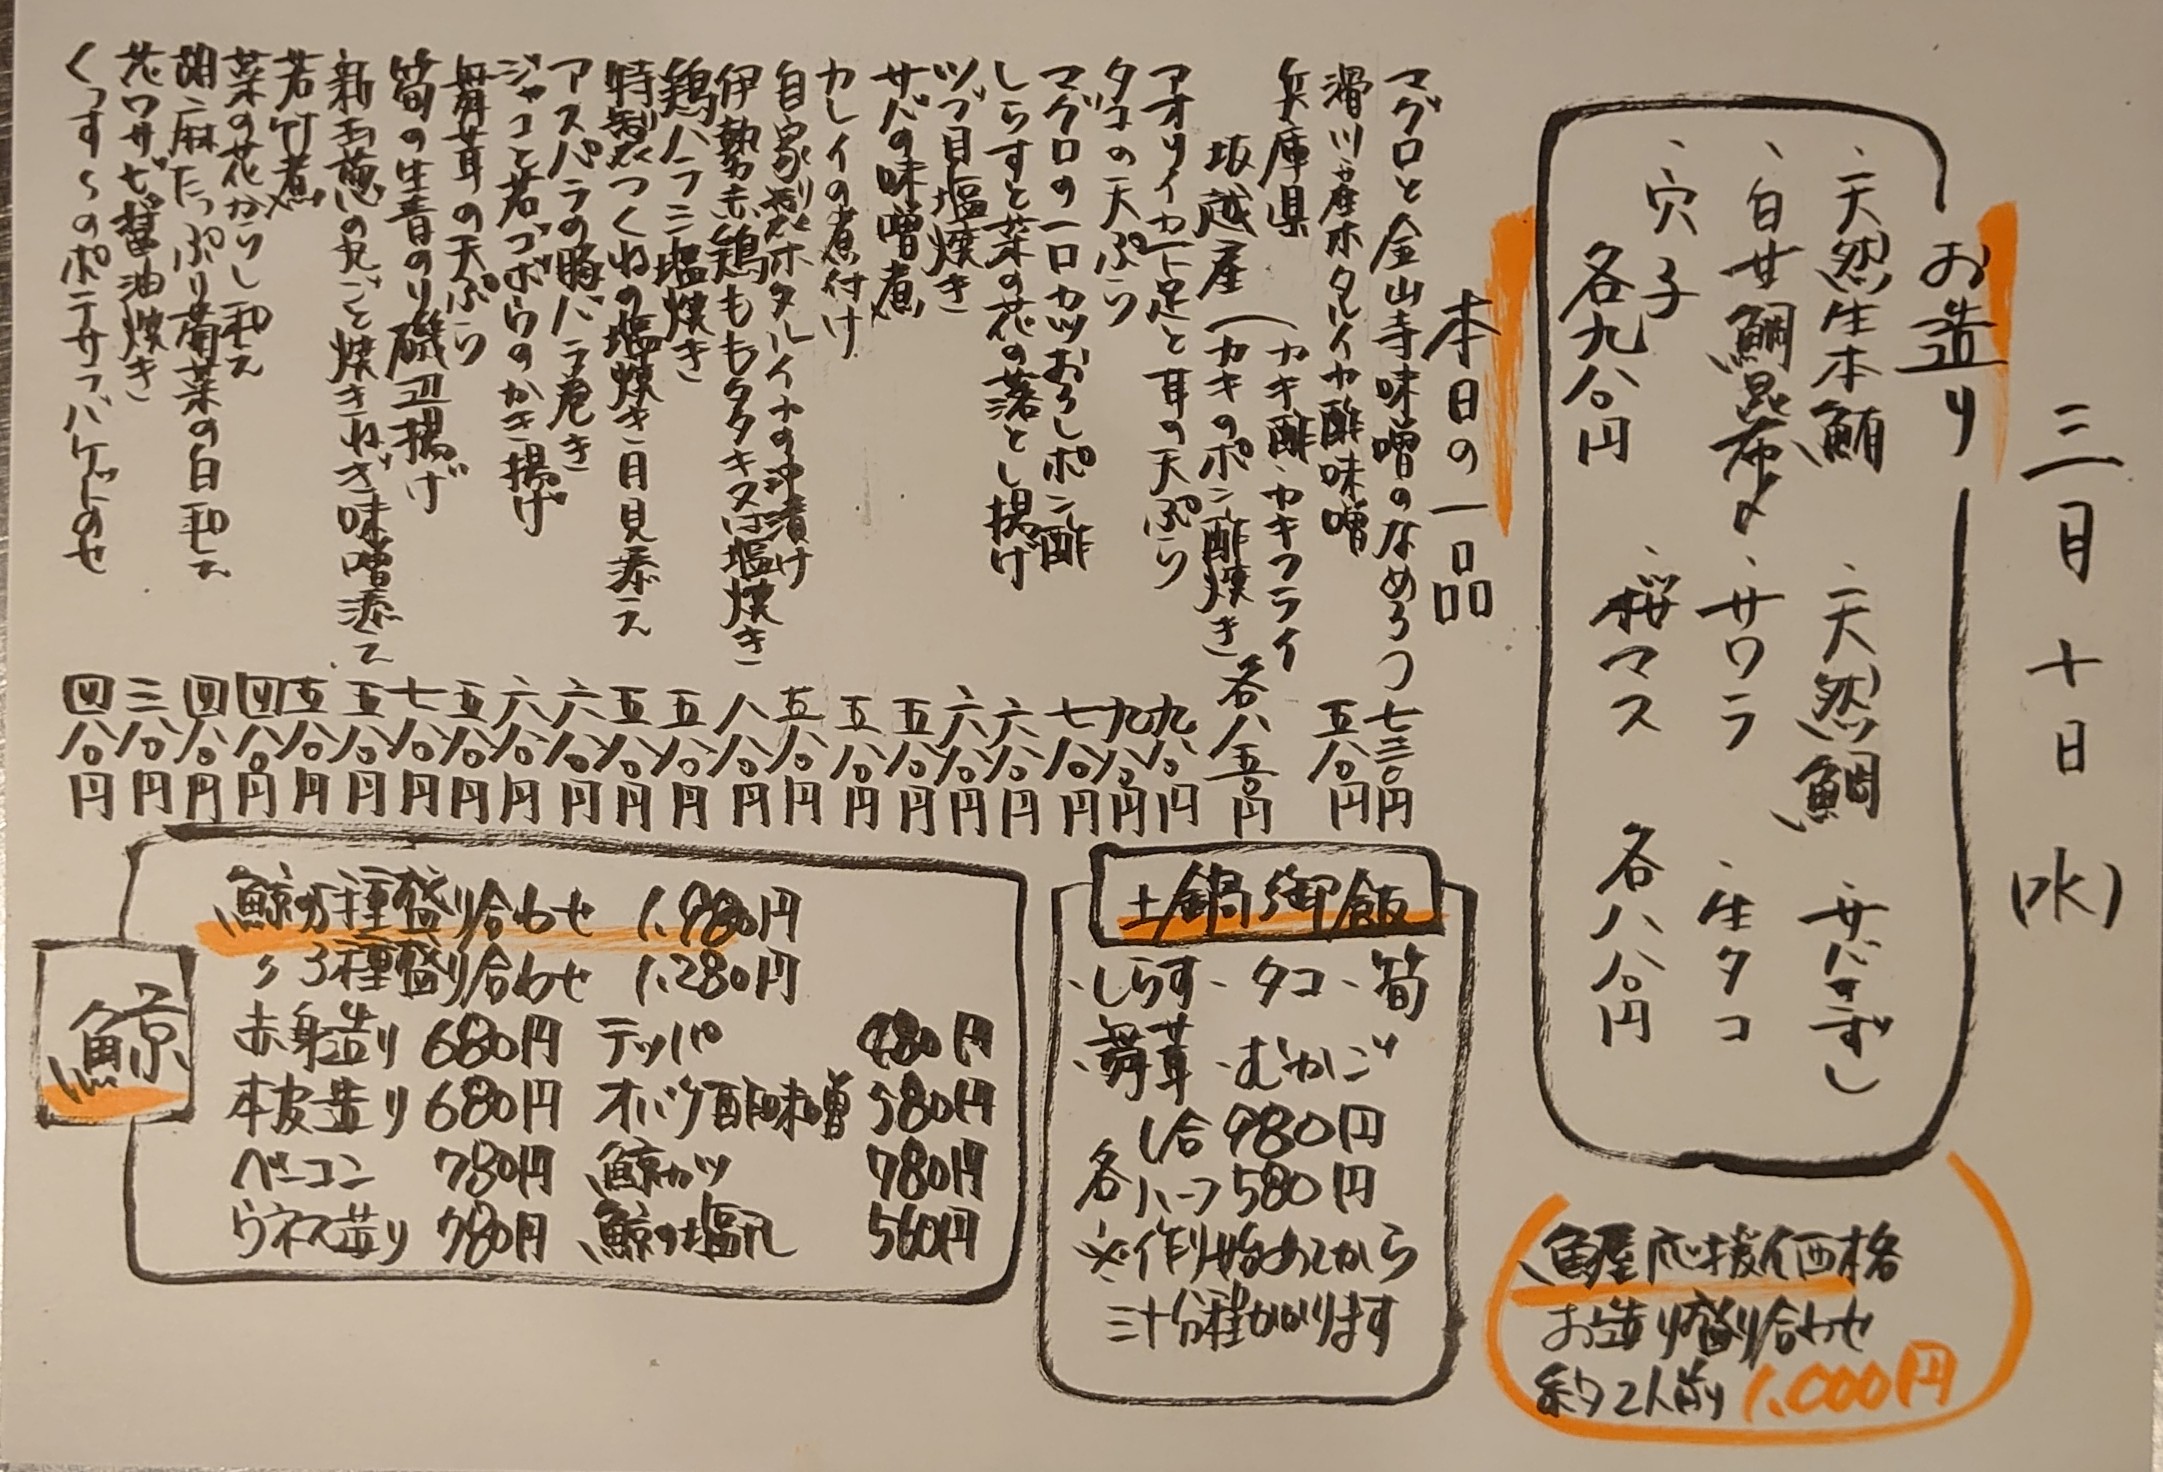 三月十日(水)
お造り
、天然生本鮪 、天然鯛 、サバきずし
、白甘鯛昆布〆 、サワラ 、生タコ
、穴子 、桜マス
各九八〇円 各八八〇円
本日の一品
マグロと金山寺味噌のなめろう 七三〇円
滑川産ホタルイカ酢味噌 五八〇円
兵庫県 坂越産(カキ酢・カキフライ
(カキのポン酢焼き 各八五〇円
アオリイカ下足と耳の天ぷら 九八〇円
タコの天ぷら 九八〇円
マグロの一口カツおろしポン酢 七八〇円
しらすと菜の花の落とし揚げ 六八〇円
ツブ貝塩焼き 六八〇円
サバの味噌煮 五八〇円
カレイの煮付け 五八〇円
自家製ホタルイカの沖漬け 五八〇円
伊勢赤鶏ももタタキ又は塩焼き 八八〇円
鶏ハラミ塩焼き 五八〇円
特製つくねの塩焼き月見添え 五八〇円
アスパラの豚バラ巻き 六八〇円
ジャコと若ゴボウのかき揚げ 六八〇円
舞茸の天ぷら 五八〇円
筍の生青のり磯辺揚げ 七八〇円
新玉葱の丸ごと焼きねぎ味噌添え 五八〇円
若竹煮 五八〇円
菜の花からし和え 四八〇円
胡麻たっぷり菊菜の白和え 四八〇円
花ワサビ醤油焼き 三八〇円
くっす〜のポテサラ バケットのせ 四八〇円
土鍋御飯
、しらす 、タコ 、筍
、舞茸 、むかご
1合980円
各ハーフ580円
※作り始めてから
三十分程かかります
鯨
鯨の5種盛り合わせ 1,980円
〃 3種盛り合わせ 1,280円
赤身造り 680円 テッパ 480円
本皮造り 680円 オバケ酢味噌 580円
ベーコン 780円 鯨カツ 780円
ウネス造り 780円 鯨の塩タレ 560円
魚屋応援価格
お造り盛り合わせ
約2人前 1,000円